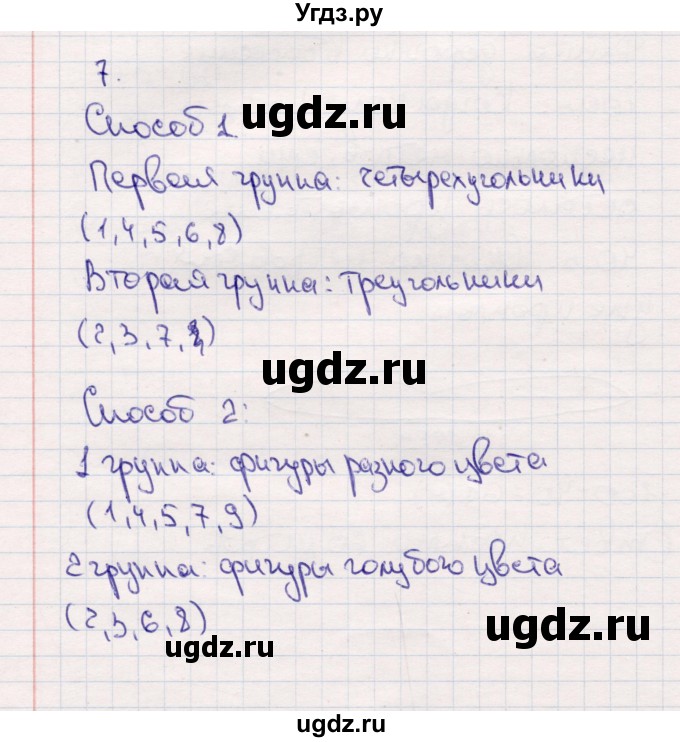 Угдз.ру
7.
Способ 1.
ugdz.ru
Первая группа: четырехугольники
(1,4,5,6,8)
Вторая группа: треугольники
(2,3,7,9)
ugdz.ru
Способ 2:
1 группа: фигуры разного цвета
(1,4,5,7,9)
ugdz.ru
2 группа: фигуры голубого цвета
(2,3,6,8)
ugdz.ru
ugdz.ru
ugdz.ru